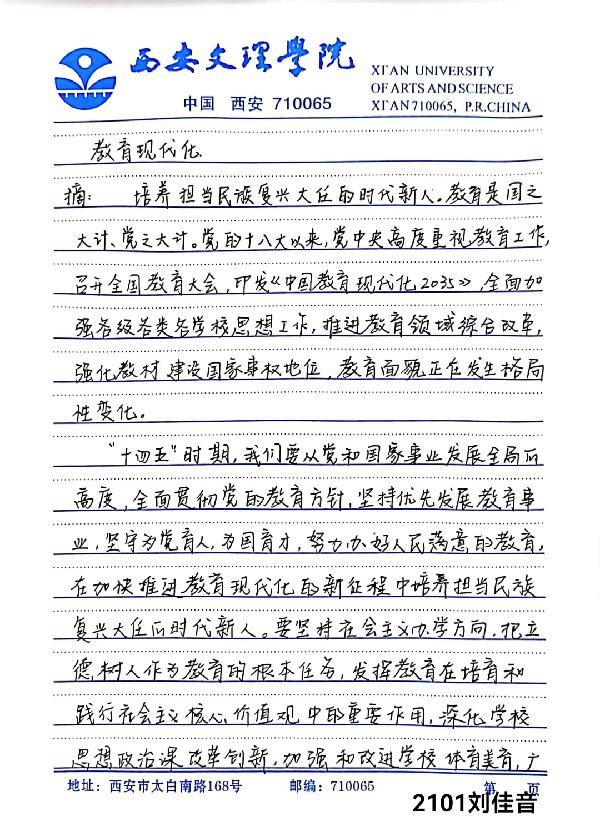 西安文理學院
XI'AN UNIVERSITY
OF ARTS AND SCIENCE
中国 西安 710065
XI'AN 710065, P.R.CHINA
教育现代化
摘: 培养担当民族复兴大任的时代新人。教育是国之
大计、党之大计。党的十八大以来,党中央高度重视教育工作,
召开全国教育大会,印发《中国教育现代化2035》,全面加
强各级各类各学校思想工作,推进教育领域综合改革,
强化教材建设国家事权地位,教育面貌正在发生格局
性变化。
“十四五”时期,我们要从党和国家事业发展全局的
高度,全面贯彻党的教育方针,坚持优先发展教育事
业,坚守为党育人,为国育才,努力办好人民满意的教育,
在加快推进教育现代化的新征程中培养担当民族
复兴大任的时代新人。要坚持社会主义办学方向,把立
德树人作为教育的根本任务,发挥教育在培育和
践行社会主义核心价值观中的重要作用,深化学校
思想政治课改革创新,加强和改进学校体育美育,广
地址: 西安市太白南路168号 邮编: 710065 第 页
2101刘佳音